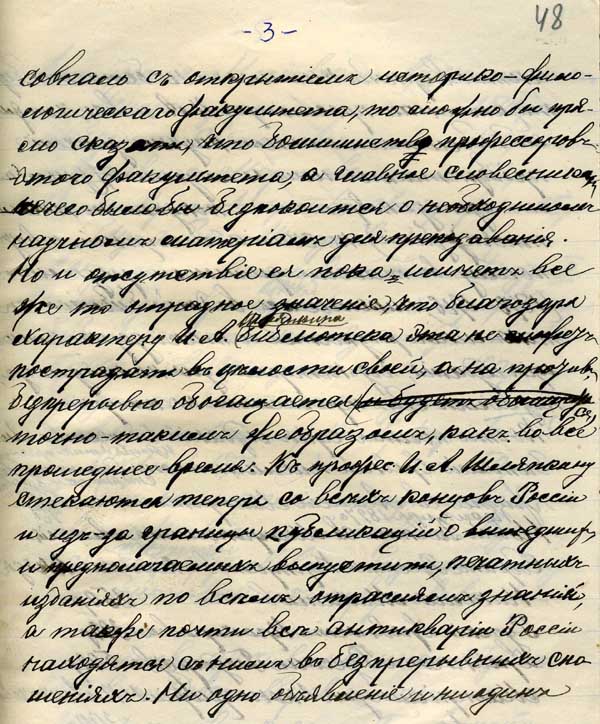 48
- 3 -
совпало съ открытіемъ историко-фило-
логическаго факультета, то можно бы пря-
мо сказать, что большинству профессоровъ
этого факультета, а главное словесникамъ
нечего было бы безпокоится о необходимомъ
научномъ матеріалѣ для преподаванія.
Но и отсутствіе ея пока имѣетъ все
же то отрадное значеніе, что благодаря
Шляпкина
характеру И. А. библіотека эта не можетъ
пострадать въ цѣлости своей, а на противъ
безпрерывно обогащается и будетъ обогащаться
точно-такимъ же образомъ, какъ во все
прошедшее время. Къ профес. И. А. Шляпкину
стекаются теперь со всѣхъ концовъ Россіи
и изъ-за границы публикацій о вышедшихъ
и предполагаемыхъ выпустить, печатныхъ
изданіяхъ по всѣмъ отраслямъ знаній,
а также почти всѣ антикваріи Россіи
находятся съ нимъ въ безпрерывныхъ сно-
шеніяхъ. Ни одно объявленіе и ни одинъ